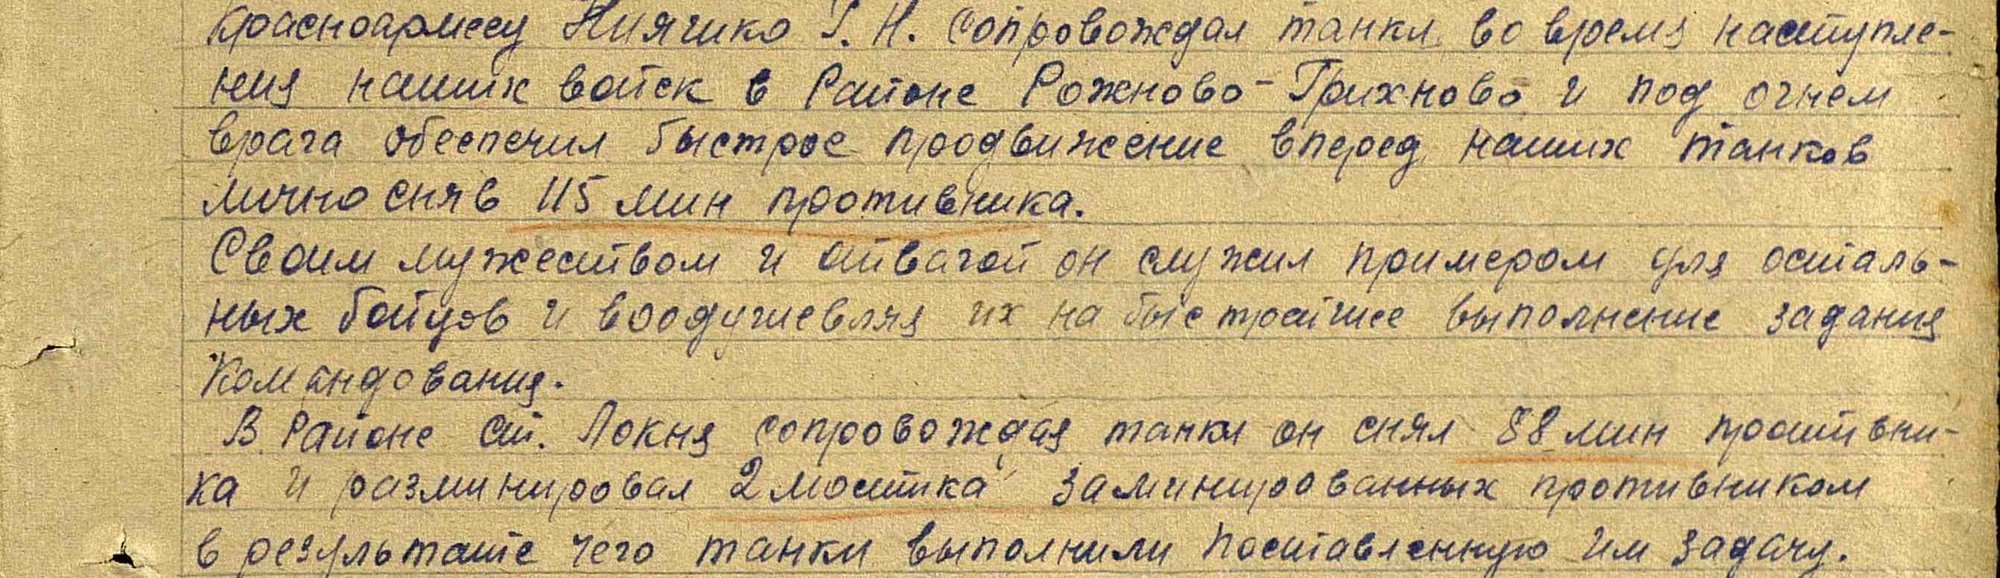 Красноармеец Г. Н. сопровождал танки во время наступле-
ния наших войск в Районе Рожново-Грихново и под огнем
врага обеспечил быстрое продвижение вперед наших танков
лично сняв 115 мин противника.
Своим мужеством и отвагой он служил примером для осталь-
ных бойцов и воодушевляя их на быстрейшее выполнение задания
Командования.
В Районе ст. Локня сопровождая танки он снял 88 мин противни-
ка и разминировал 2 мостика заминированных противником
в результате чего танки выполнили поставленную им задачу.